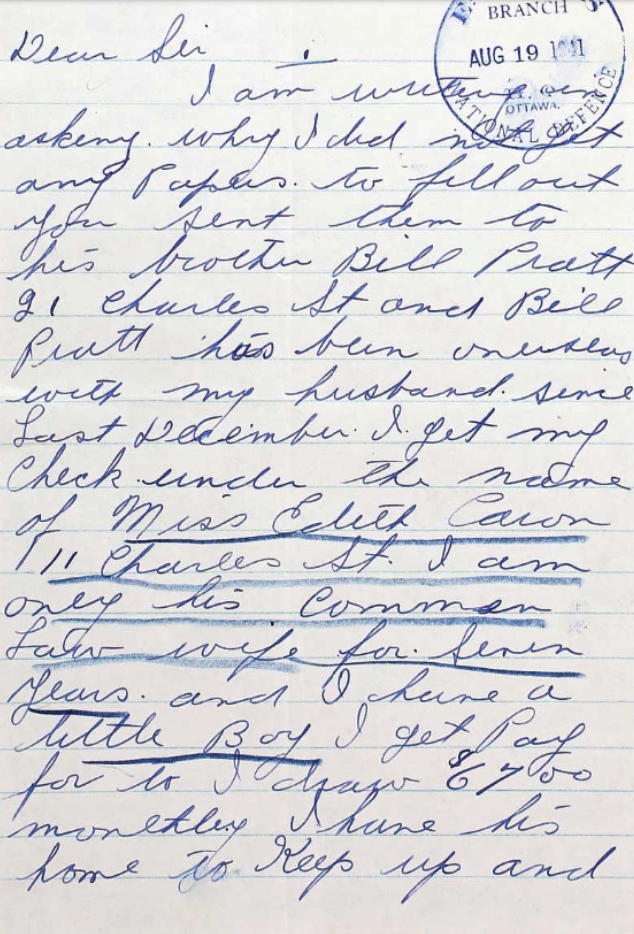 BRANCH
AUG 19 1941
OTTAWA.
NATIONAL DEFENCE
Dear Sir
I am writing
askeny. why I did not get
any Papers. to fill out
You sent them to
his brother Bill Pratt
91 Charles St and Bill
Pratt has been overseas
with my husband. since
Last December. I get my
Check under the name
of Miss Edith Caron
111 Charles St. I am
only his Common
Law wife for. Seven
Years. and I have a
little Boy I get Pay
for to I draw $67 00
monthley I have his
home to Keep up and